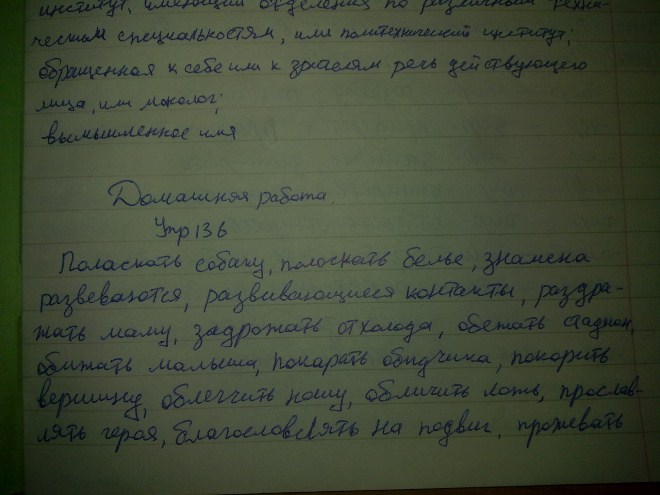 институт, имеющий отделения по различным техни-
ческим специальностям, или политехнический институт;
обращенная к себе или к зрителям речь действующего
лица, или монолог;
вымышленное имя
Домашняя работа.
Упр 136
Поласкать собаку, полоскать белье, знамена
развеваются, развивающиеся контакты, раздра-
жать маму, задрожать от холода, обежать стадион,
обижать малыша, покарать обидчика, покорить
вершину, облегчить ношу, обличить ложь, прослав-
лять героя, благословлять на подвиг, прожевать